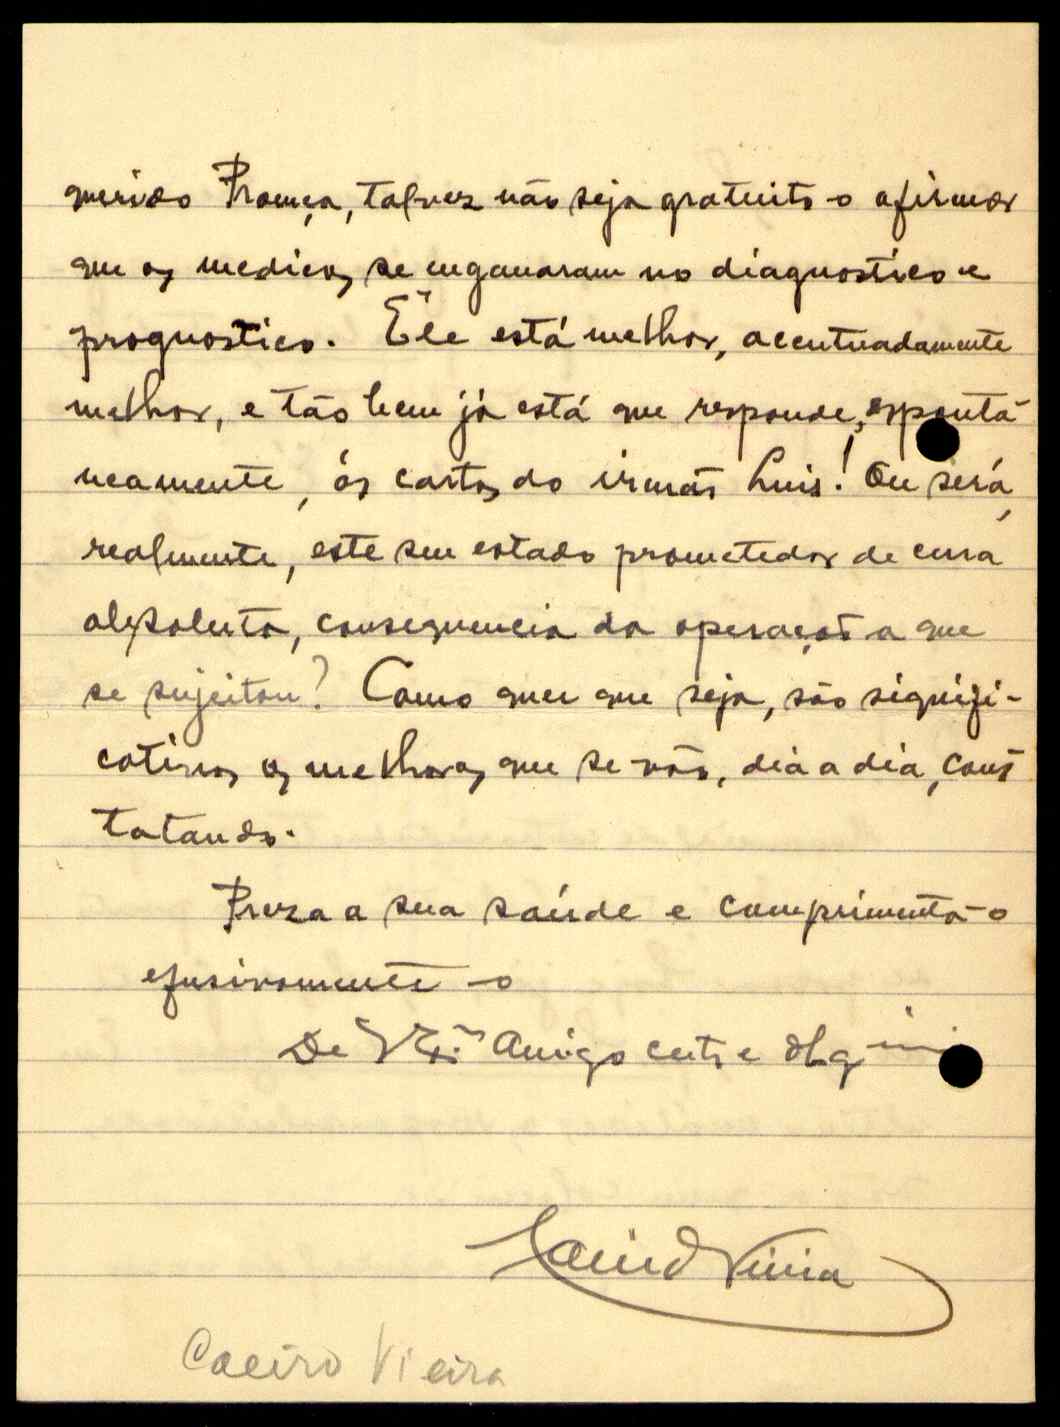 querido Proença, talvez não seja gratuito o afirmar
que os medicos se enganaram no diagnostico e
prognostico. Êle está melhor, acentuadamente
melhor, e tão bem já está que responde, espontâ-
neamente, ás cartas do irmão Luis! Ou será,
realmente, este seu estado prometedor de cura
absoluta, consequencia da operação a que
se sujeitou? Como quer que seja, são signifi-
cativas as melhoras que se vão, dia a dia, cons
tatando.
Preza a sua saúde e cumprimenta-o
efusivamente o
De V. Ex.ª Amigo certo e obg
Vieira
Caeiro Vieira